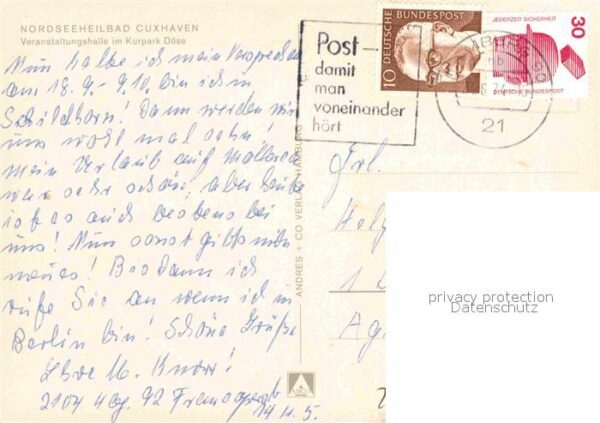 NORDSEEHEILBAD CUXHAVEN
Veranstaltungshalle im Kurpark Döse
Nun habe ich mein Versprechen
am 18.9.-9.10. bin ich in
Schildhorn! Dann werden wir
uns wohl mal sehn!
Mein Urlaub auf Mallorca
war sehr schön, aber heute
ist es auch bestens bei
uns! Nun sonst gibts nichts
neues! Bis dann ich
rufe Sie an wenn ich in
Berlin bin! Schöne Grüße
Ihre M. Knorr!
2104 Hbg. 92
14 4. 5.
ANDRES + CO VERLAG HAMBURG
Post-
damit
man
voneinander
hört
10
DEUTSCHE BUNDESPOST
JEDERZEIT SICHERHEIT
30
DEUTSCHE BUNDESPOST
21
Frl.
Helg
1
privacy protection
Datenschutz